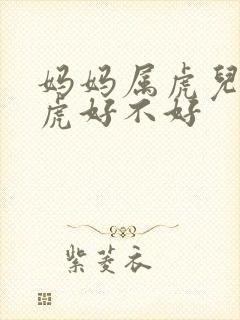 妈妈属虎兒
虎好不好
紫菱衣